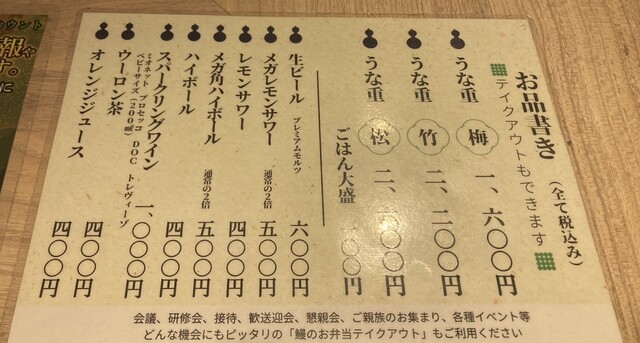 お品書き（全て税込み）
テイクアウトもできます
うな重 梅 一、六〇〇円
うな重 竹 二、二〇〇円
うな重 松 二、
ごはん大盛
生ビール プレミアムモルツ 六〇〇円
メガレモンサワー 通常の2倍 五〇〇円
レモンサワー 四〇〇円
メガ角ハイボール 通常の2倍 五〇〇円
ハイボール 四〇〇円
スパークリングワイン 一、〇〇〇円
ミオネット プロセッコ DOC トレヴィーゾ
ベビーサイズ（200㎖）
ウーロン茶 四〇〇円
オレンジジュース 四〇〇円
会議、研修会、接待、歓送迎会、懇親会、ご親族のお集まり、各種イベント等
どんな機会にもピッタリの「鰻のお弁当テイクアウト」もご利用ください
カウント
報や
す。
に